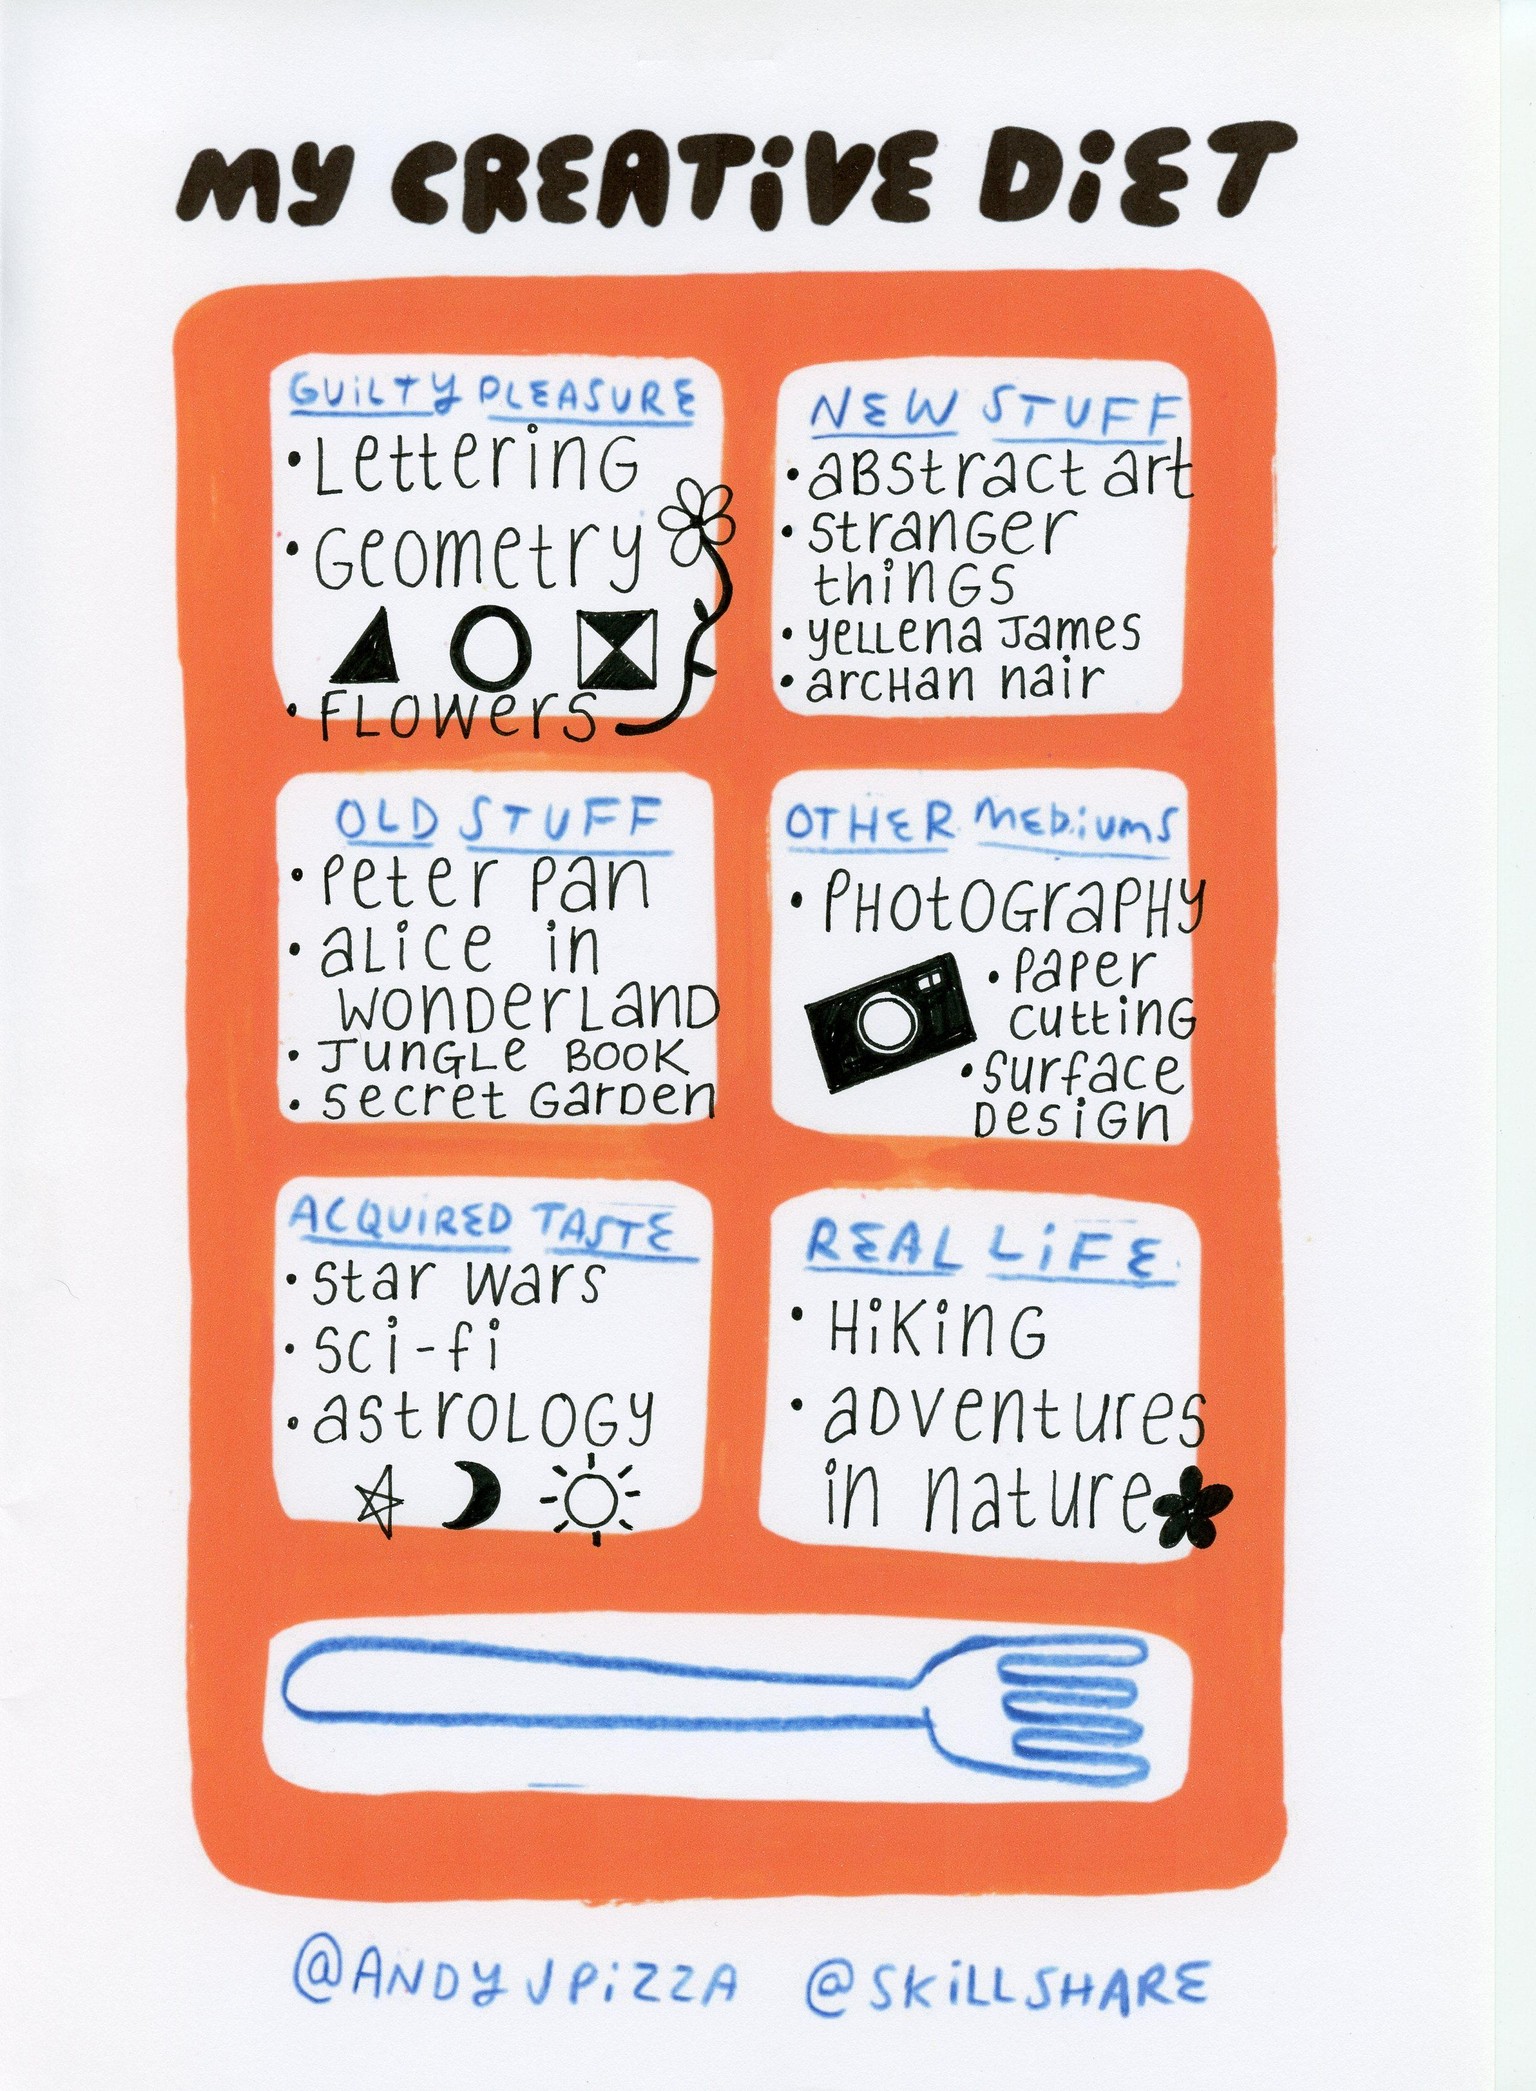 MY CREATiVE DiET
GUiLTY PLEASURE
• LetterinG
• GeOmetry
• FLOWers
NEW STUFF
• aBStract art
• StranGer
thinGS
• yeLLena James
• arcHan nair
OLD STUFF
• Peter Pan
• aLice in
WONDerLanD
• JunGLe BOOK
• Secret GarDen
OTHER MEDiUMS
• PHOtOGraPHy
• PaPer
cuttinG
• Surface
DesiGn
ACQUiRED TASTE
• Star Wars
• Sci-fi
• astrOLOGy
REAL LiFE
• HiKinG
• aDventures
in nature
@ANDYJPiZZA @SKiLLSHARE